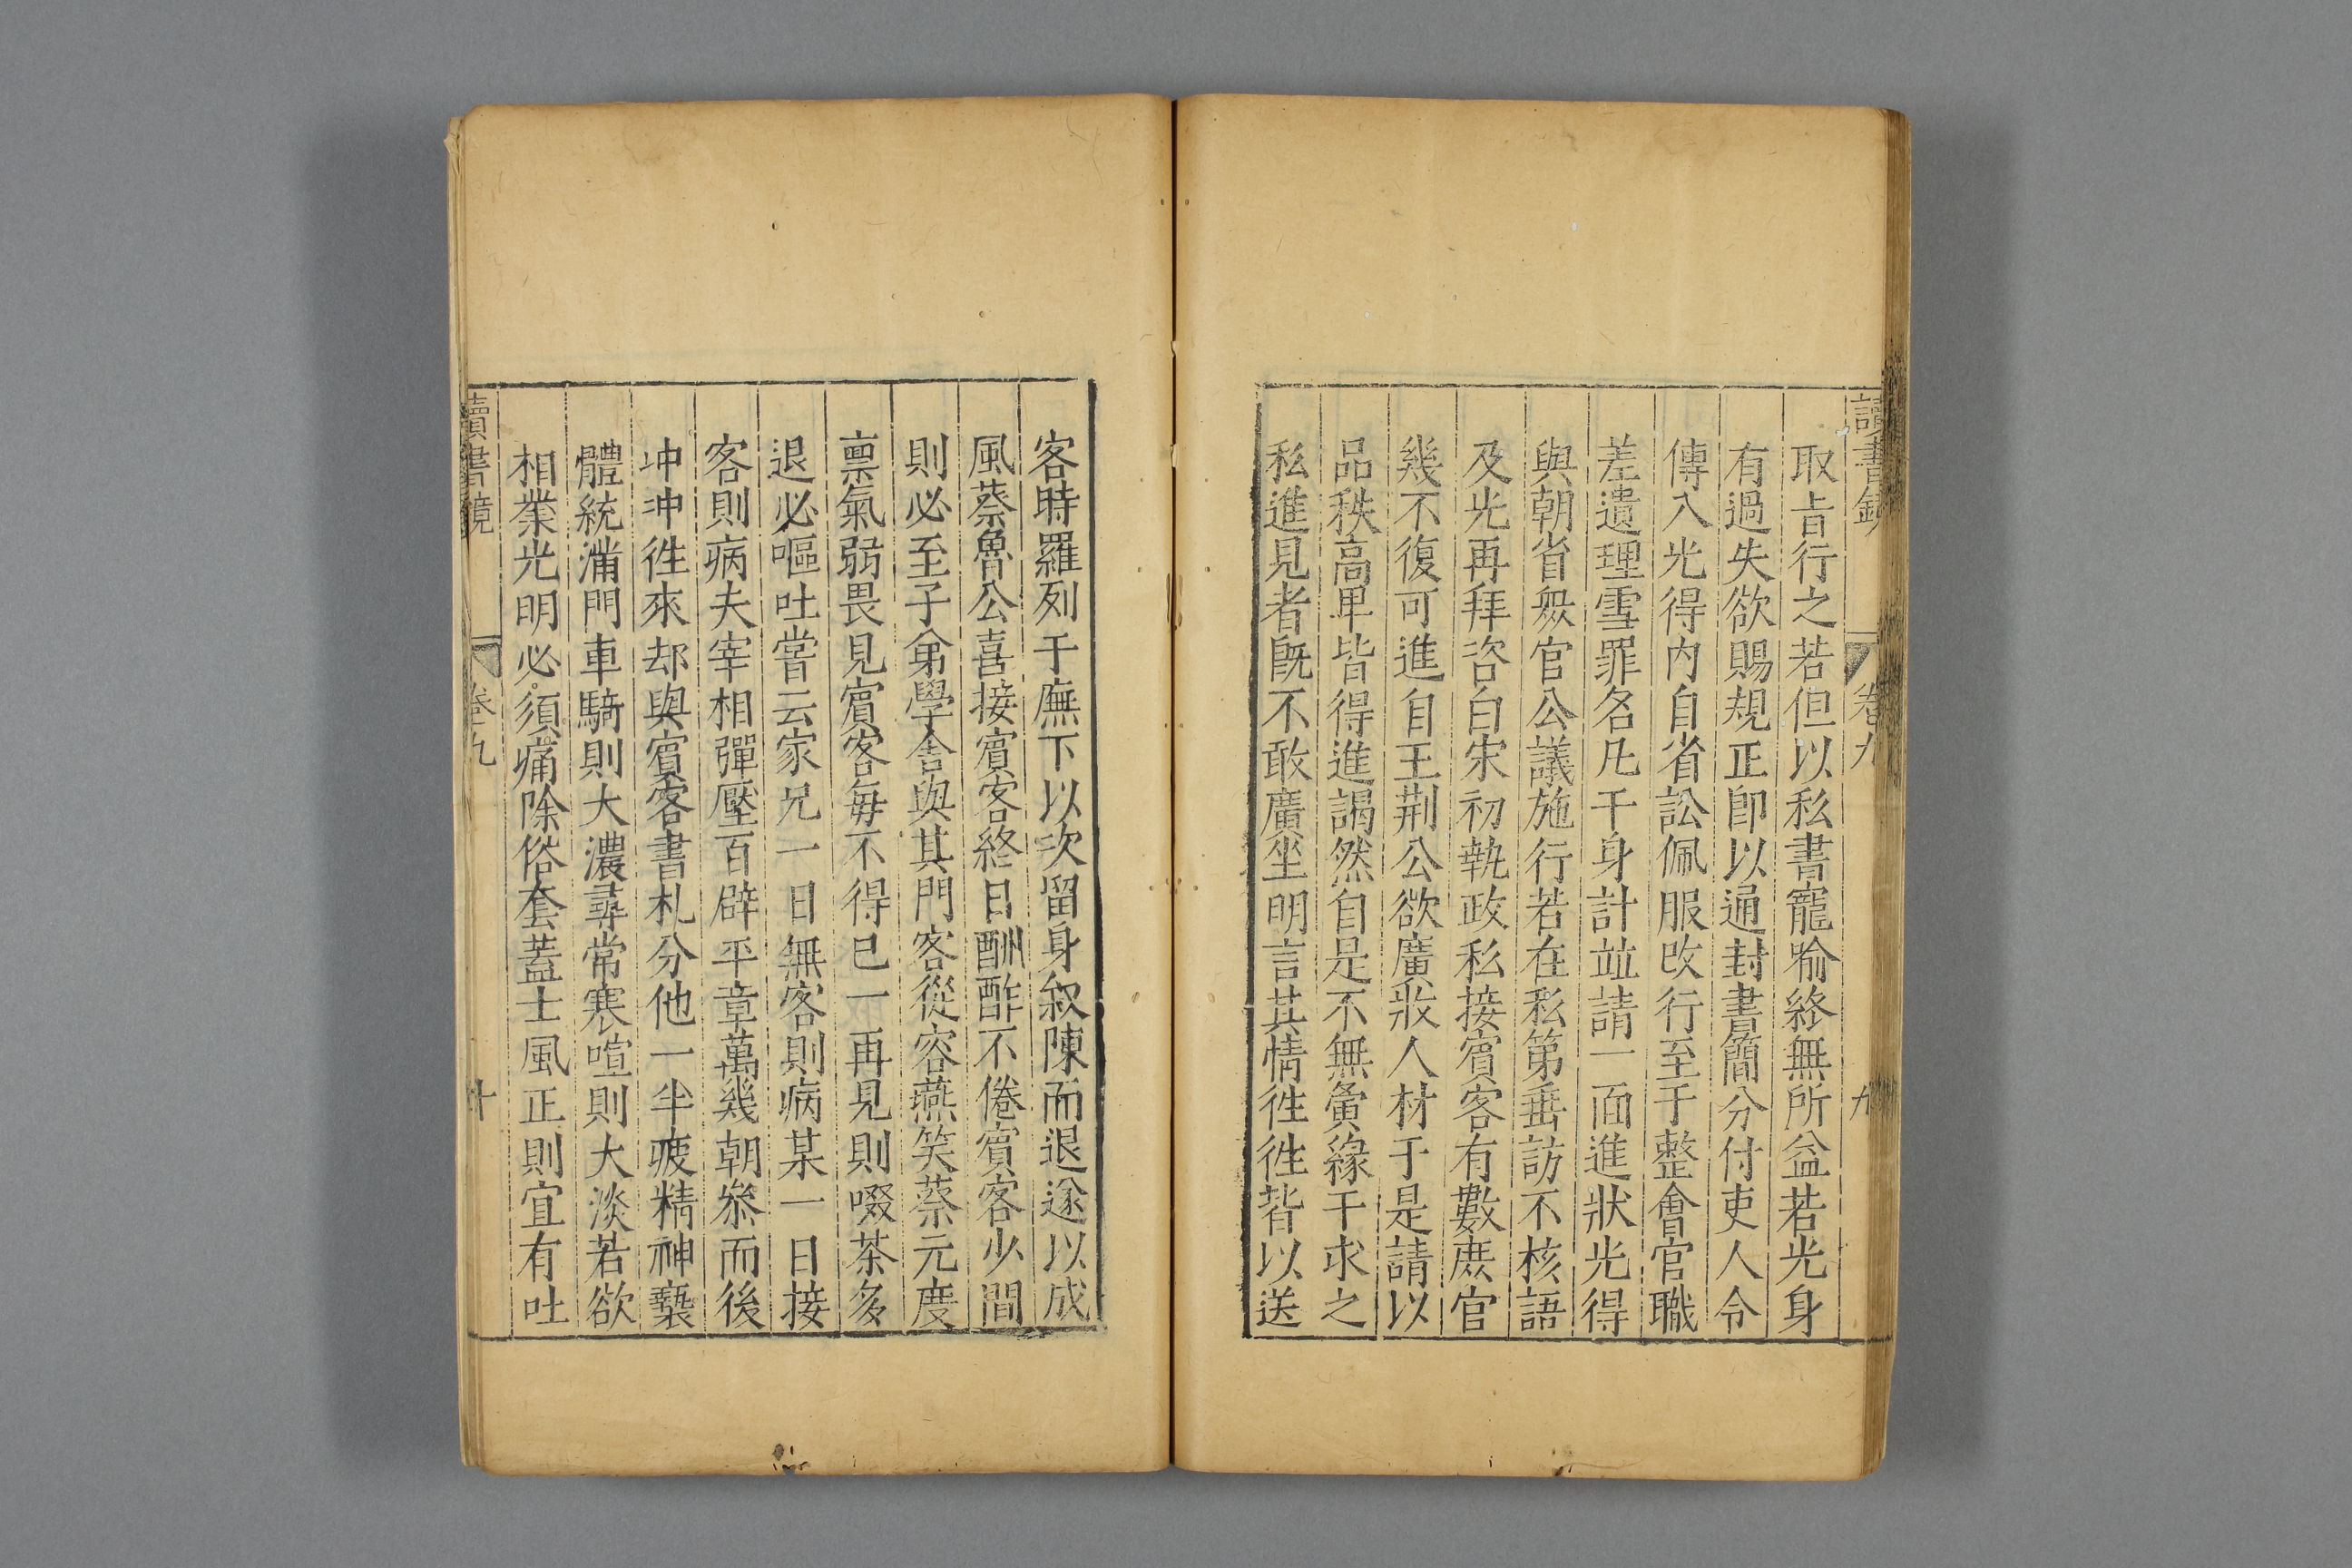 讀書鏡 卷九 九
取旨行之若但以私書寵喻終無所益若光身
有過失欲賜規正即以通封書簡分付吏人令
傳入光得內自省訟佩服改行至于整會官職
差遺理雪罪名凡干身計並請一面進狀光得
與朝省衆官公議施行若在私第垂訪不核語
及光再拜咨白宋初執政私接賓客有數庶官
幾不復可進自王荆公欲廣收人材于是請以
品秩高卑皆得進謁然自是不無夤緣干求之
私進見者旣不敢廣坐明言其情徃徃皆以送
客時羅列于廡下以次留身叙陳而退遂以成
風蔡魯公喜接賓客終日酬酢不倦賓客少間
則必至子弟學舍與其門客從容燕笑蔡元度
禀氣弱畏見賓客每不得已一再見則啜茶多
退必嘔吐嘗云家兄一日無客則病某一日接
客則病夫宰相彈壓百辟平章萬幾朝叅而後
冲冲徃來却與賓客書札分他一半疲精神褻
體統滿門車騎則大濃尋常寒喧則大淡若欲
相業光明必須痛除俗套蓋士風正則宜有吐
讀書鏡 卷九 十